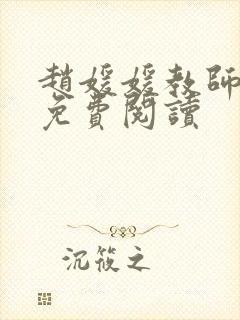 趙媛媛教師
免費閱讀
沉筱之